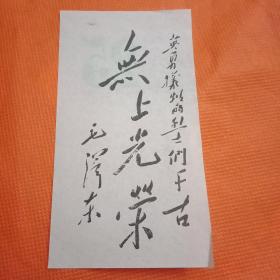 英勇牺牲的烈士們千古
無上光荣
毛澤东